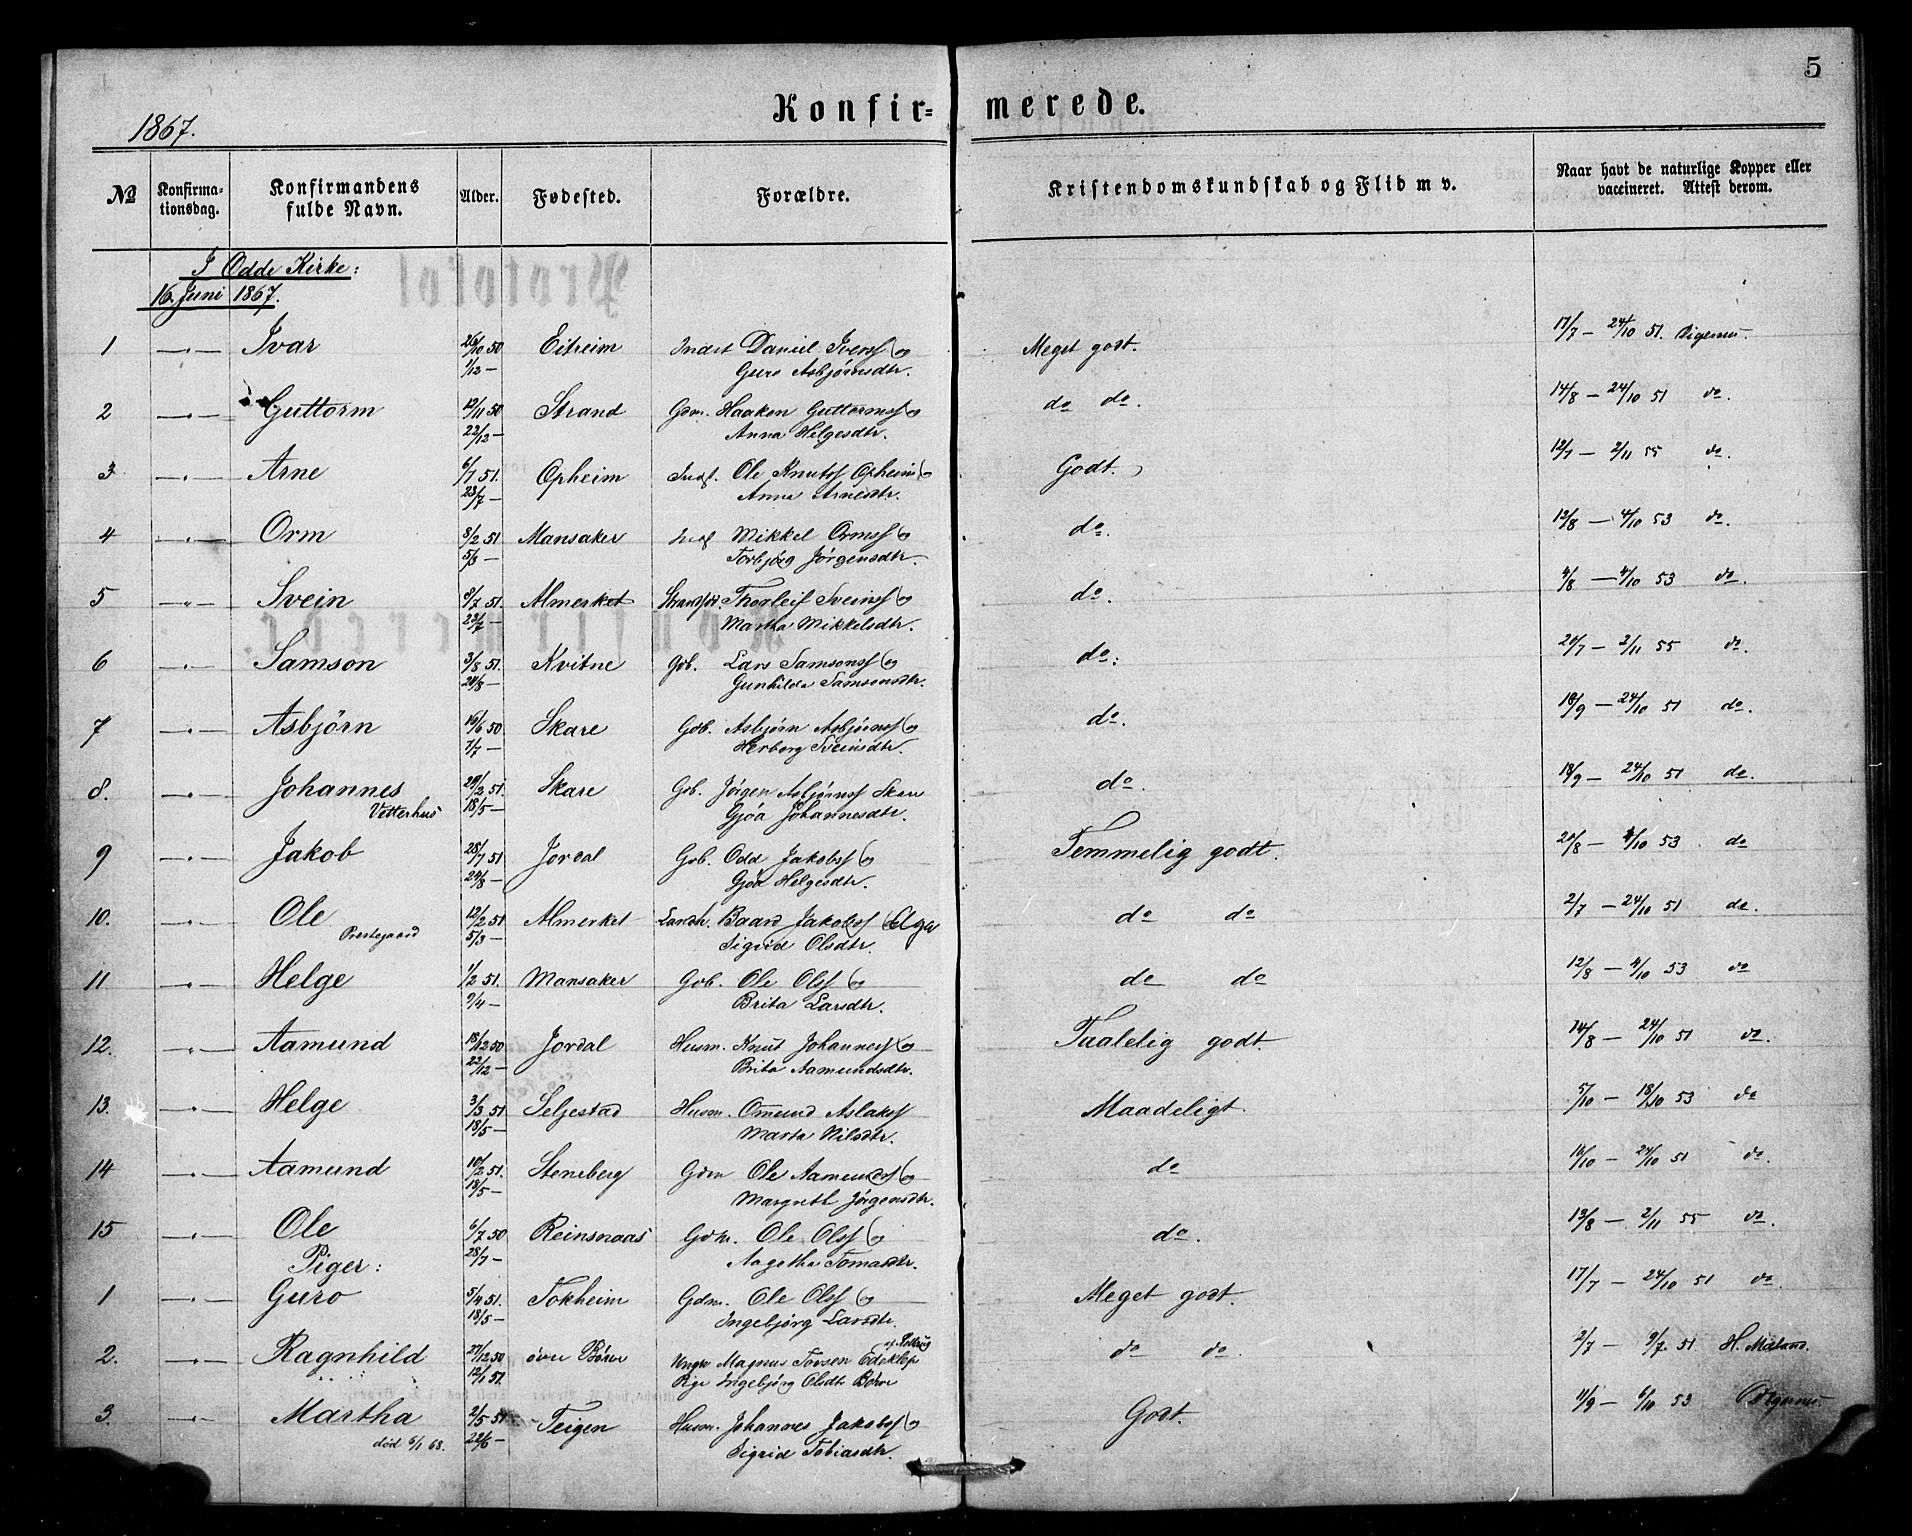 5
Konfir= merede.
1867.
№ Konfirma-tionsdag. Konfirmandens fulde Navn. Alder. Fødested. Forældre. Kristendomskundskab og Flid m v. Naar havt de naturlige Kopper eller vaccineret. Attest derom.
I Odde Kirke:
16. Juni 1867.
1 -"- Ivar 26/10 50 Eitreim Indst Daniel Iverss og Meget godt. 17/7 - 24/10 51.
1/12 - Guro Asbjørnsdtr.
2 -"- Guttorm 12/11 50 Strand Gdm. Haakon Guttormss og do do. 14/8 - 24/10 51 do.
22/12 - Anna Helgesdtr.
3 -"- Arne 6/7 51. Opheim Indst. Ole Knutss Opheim og Godt. 12/7 - 2/11 55 do.
23/7 - Anna Arnesdtr.
4 -"- Orm 8/2 51 Mansaker Indst Mikkel Ormss og do. 12/8 - 4/10 53 do.
5/3 - Torbjørg Jørgensdtr.
5 -"- Svein 8/7 51. Almerket Strandsdr. Thorleif Sveinss og do. 4/8 - 4/10 53 do.
23/7 - Martha Mikkelsdtr.
6 -"- Samson 3/8 51. Kvitne Gbb. Lars Samsonss og do: 20/7 - 2/11 55 do.
24/8 - Gunhilda Samsonsdtr.
7 -"- Asbjörn 16/6 50 Skare Gbb. Asbjørn Asbjørnss og do. 18/9 - 24/10 51 do.
7/7 - Herborg Sveinsdtr.
8. -"- Johannes 2/2 51. Skare Gbb. Jörgen Asbjørnss Skare do. 18/9 - 24/10 51 do.
Vetterhus 18/5 - Gjøa Johannesdtr.
9 -"- Jakob 28/7 51 Jordal Gbb. Odd Jakobss og Temmelig godt. 20/8 - 4/10 53 do
24/8 - Gjøa Helgesdtr.
10. -"- Ole 12/2 51 Almerket Landh. Baard Jakobss Aga do do 2/7 - 24/10 51 do.
Prestegaard 5/3 - Sigrid Olsdtr.
11 -"- Helge 1/2 51. Mansaker Gbb. Ole Olss og do do 12/8 - 4/10 53 do
9/4 - Brita Larsdtr.
12. -"- Aamund 18/12 50 Jordal Husm. Knut Johanness og Taalelig godt. 14/8 - 24/10 51 do.
22/12 - Brita Aamundsdtr.
13. -"- Helge 3/3 51 Seljestad Husm. Omund Aslakss Maadeligt. 5/10 - 18/10 53 do
18/5 - Marta Nilsdtr.
14 -"- Aamund 10/2 51. Steneberg Gdm Ole Aamundss og do 16/10 - 24/10 51 do.
18/5 - Margreth Jørgensdtr.
15 -"- Ole 6/7 50 Reinsnaas Gdm. Ole Olss og do. 13/8 - 2/11 55 do.
28/7 - Aagetha Tomasdtr.
Piger:
1 -"- Guro 5/4 51. Tokheim Gdm. Ole Olss og Meget godt. 17/7 - 24/10 51 do
18/5 - Ingebjörg Larsdtr.
2. -"- Ragnhild 27/12 50 øvre Børve Ungk Magnus Torsen do do. 2/7 - 9/7 51
12/1 51. Pige Ingebjørg Olsdtr Børve
3. -"- Martha 2/5 51 Teigen Husm. Johannes Jakobss og Godt. 11/9 - 6/10 53
død 6/1 68. 22/6 - Sigrid Tobiasdtr.